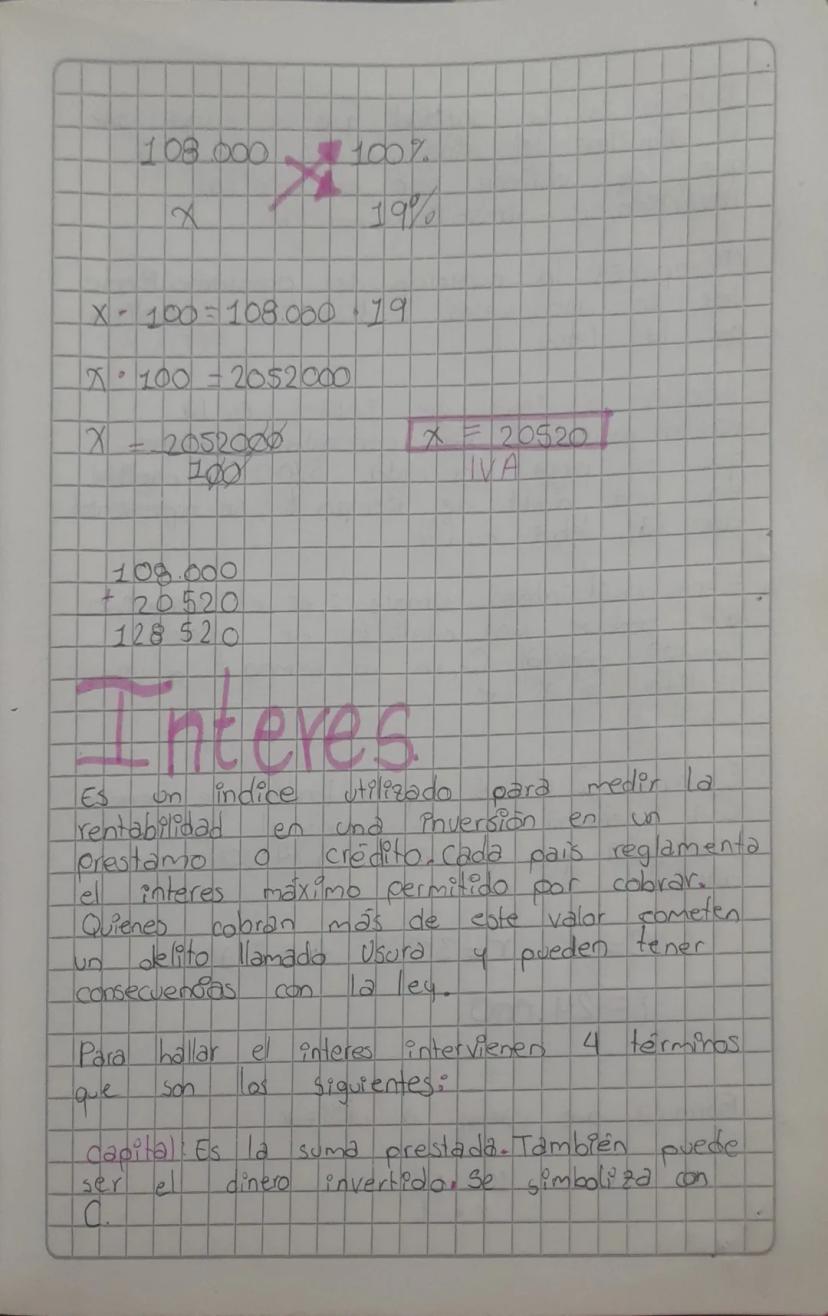 108.000 100%
x 19%
x · 100 = 108.000 · 19
x · 100 = 2052000
x = 2052000 x = 20520
100 IVA
108.000
+ 20520
128 520
Interes.
Es un índice utilizado para medir la
rentabilidad en una inversión en un
prestamo o crédito. Cada país reglamenta
el interes máximo permitido por cobrar.
Quienes cobran más de este valor cometen
un delito llamado usura y pueden tener
consecuencias con la ley.
Para hallar el interes intervienen 4 términos
que son los siguientes:
Capital: Es la suma prestada. También puede
ser el dinero invertido. Se simboliza con
C.